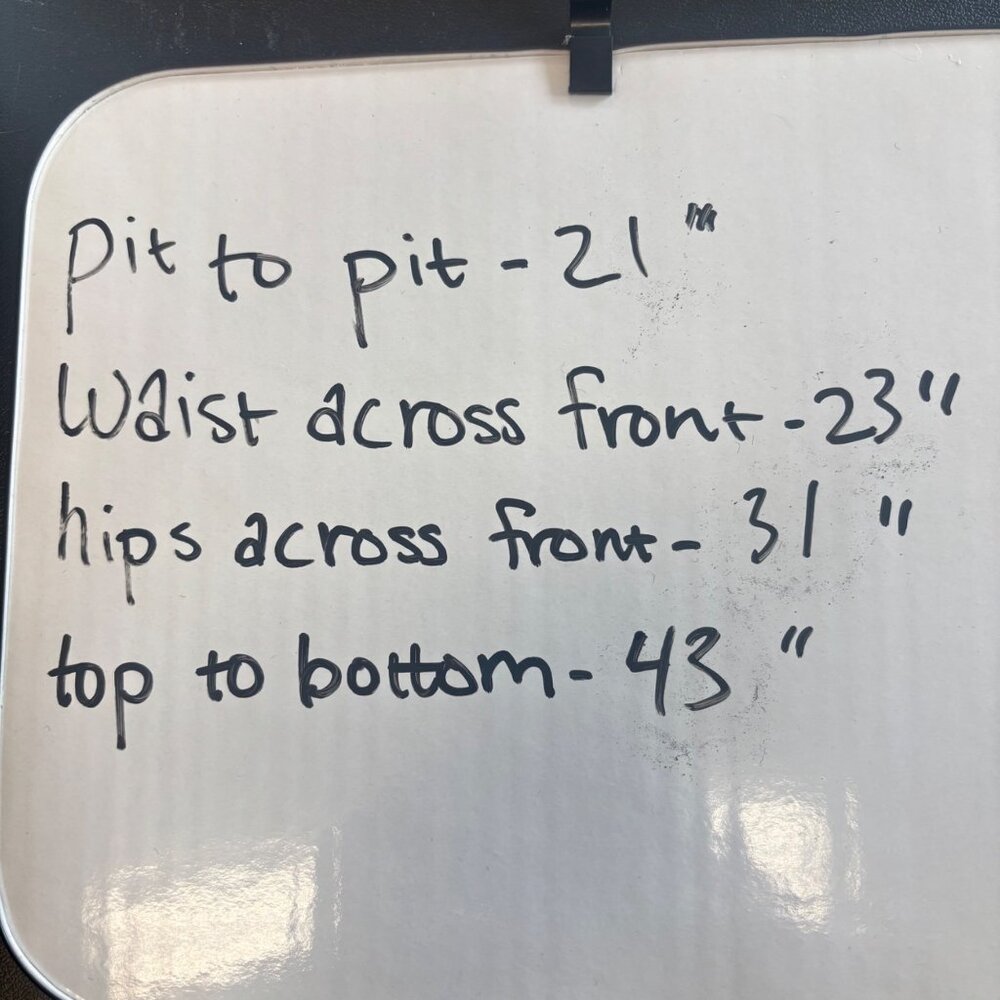 pit to pit - 21"
Waist across front - 23"
hips across front - 31"
top to bottom - 43"